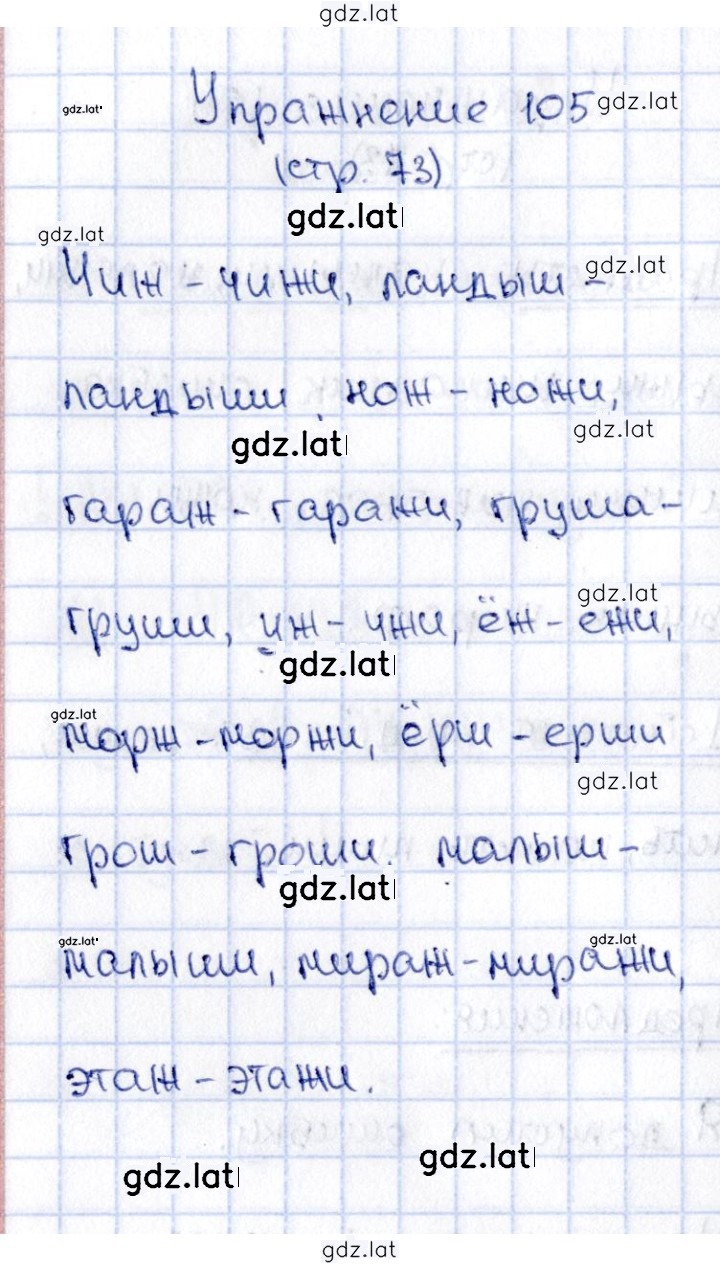 gdz.lat
gdz.lat Упражнение 105 gdz.lat
(стр. 73)
gdz.lat
gdz.lat
Чиж - чижи, ландыш - gdz.lat
ландыши, нож - ножи,
gdz.lat gdz.lat
гараж - гаражи, груша -
gdz.lat
груши, иж - ижи, ёж - ежи,
gdz.lat
gdz.lat
морж - моржи, ёрш - ерши
gdz.lat
грош - гроши. малыш -
gdz.lat
gdz.lat gdz.lat
малыши, мираж - миражи,
этаж - этажи.
gdz.lat gdz.lat
gdz.lat